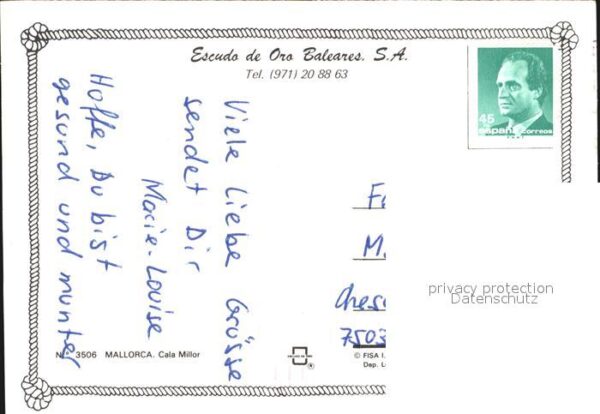 Escudo de Oro Baleares, S.A.
Tel. (971) 20 88 63
45
España
correos
Viele liebe Grüsse
sendet Dir
Marie-Louise
Hoffe, Du bist
gesund und munter
F
M
Ches
7503
privacy protection
Datenschutz
N.º 3506 MALLORCA. Cala Millor
© FISA I.
Dep. L